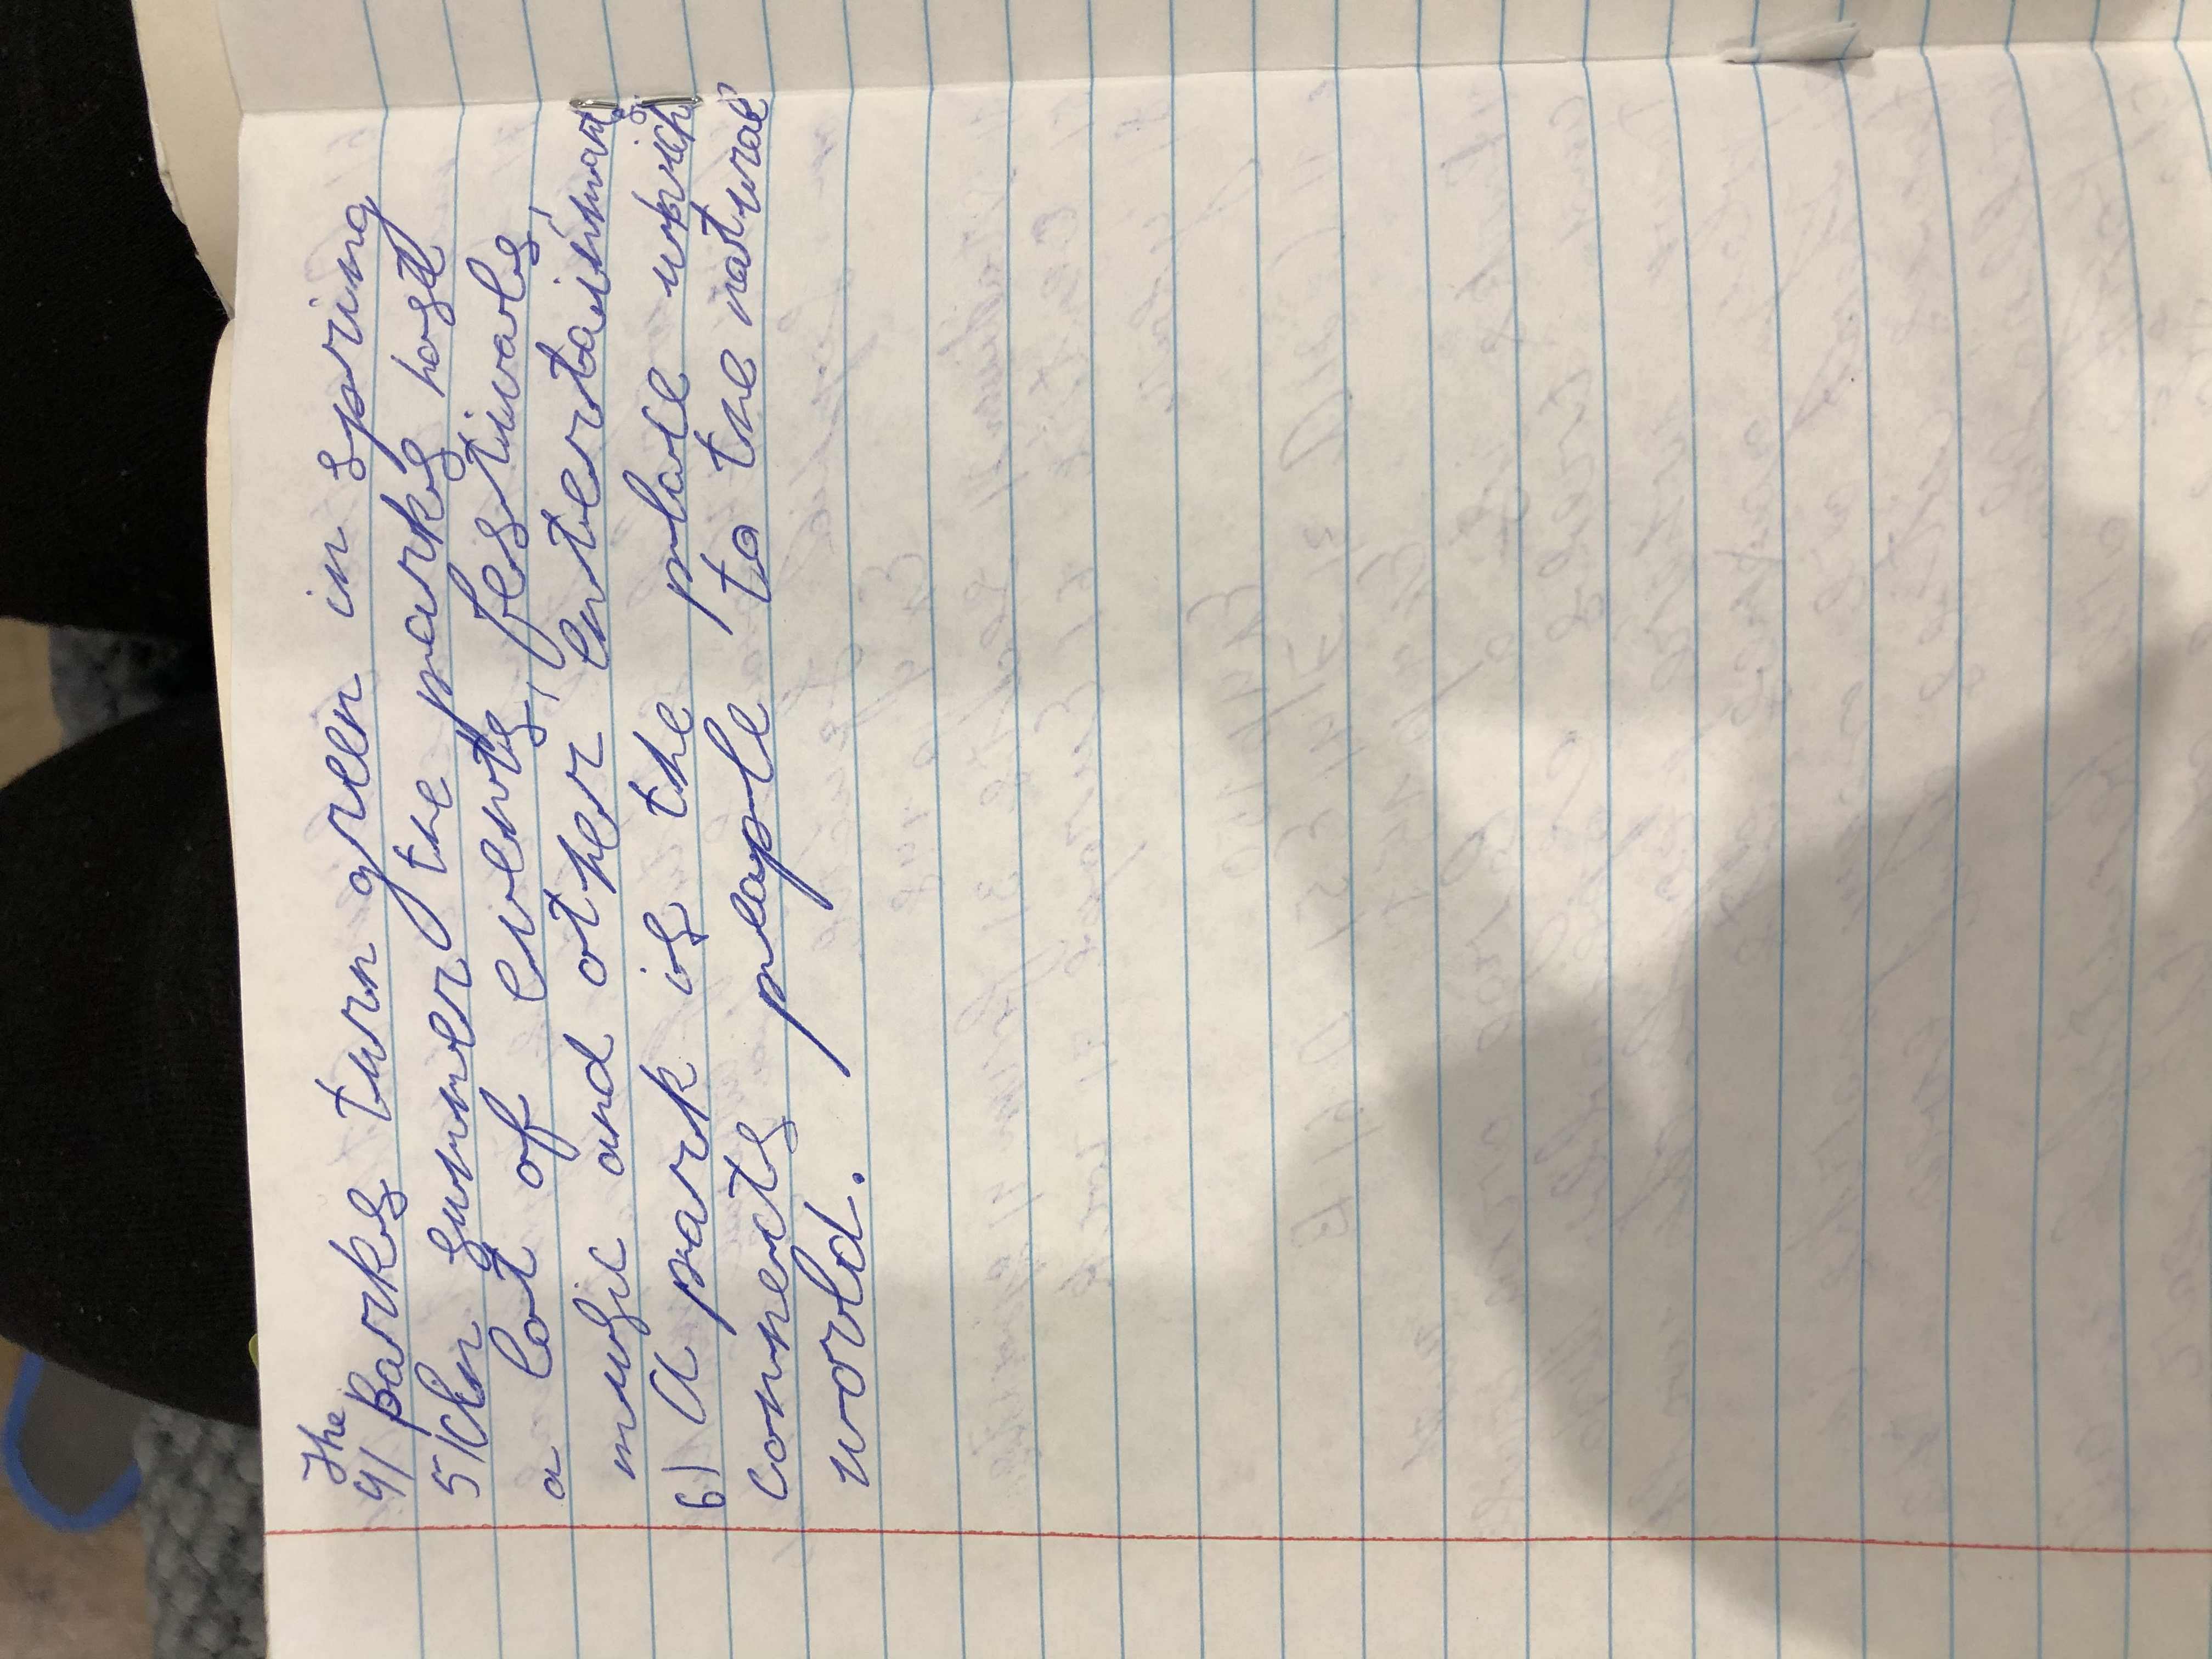 The
4) Parks turn green in spring
5) In summer the parks host
a lot of events, festivals,
music and other entertainments.
6) A park is the place which
connects people to the natural
world.